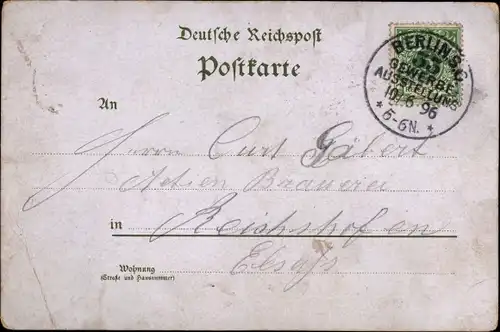 Deutsche Reichspost
Postkarte
BERLIN S.C.
GEWERBE
AUSSTELLUNG
10.6.96
*5-6N.*
An
Herrn Curt Gäbert
Actien Brauerei
in Reichshofen
Elsaß
Wohnung
(Straße und Hausnummer)